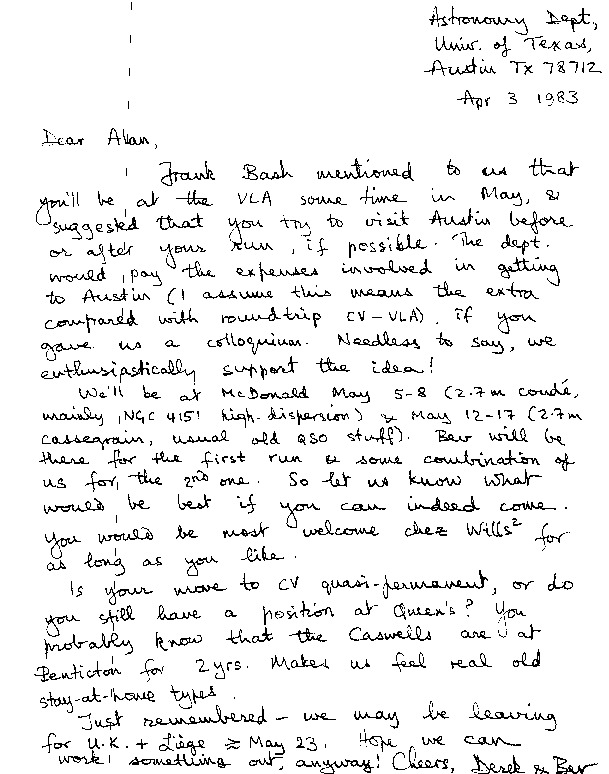 Astronomy Dept,
Univ. of Texas,
Austin Tx 78712
Apr 3 1983
Dear Alan,
Frank Bash mentioned to us that
you'll be at the VLA some time in May, &
suggested that you try to visit Austin before
or after your run, if possible. The dept.
would pay the expenses involved in getting
to Austin (I assume this means the extra
compared with roundtrip CV-VLA), if you
gave us a colloquium. Needless to say, we
enthusiastically support the idea!
We'll be at McDonald May 5-8 (2.7m coudé,
mainly NGC 4151 high-dispersion) & May 12-17 (2.7m
cassegrain, usual old QSO stuff). Bev will be
there for the first run & some combination of
us for the 2nd one. So let us know what
would be best if you can indeed come.
You would be most welcome chez Wills² for
as long as you like.
Is your move to CV quasi-permanent, or do
you still have a position at Queen's? You
probably know that the Caswells are at
Penticton for 2yrs. Makes us feel real old
stay-at-home types.
Just remembered - we may be leaving
for U.K. + Liège ≈ May 23. Hope we can
work something out, anyway! Cheers, Derek & Bev